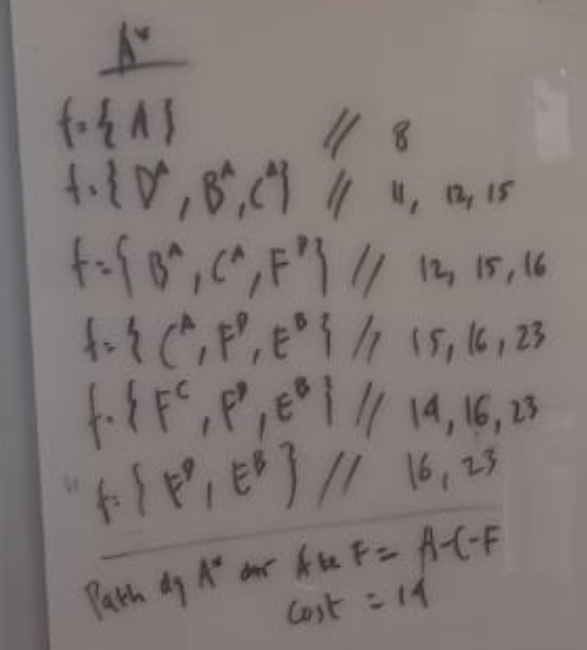 A*
f={A} // 8
f={D^A, B^A, C^A} // 11, 12, 15
f={B^A, C^A, F^D} // 12, 15, 16
f={C^A, F^D, E^B} // 15, 16, 23
f={F^C, F^D, E^B} // 14, 16, 23
f={F^D, E^B} // 16, 23
Path dg A* dar A ke F = A-C-F
Cost = 14